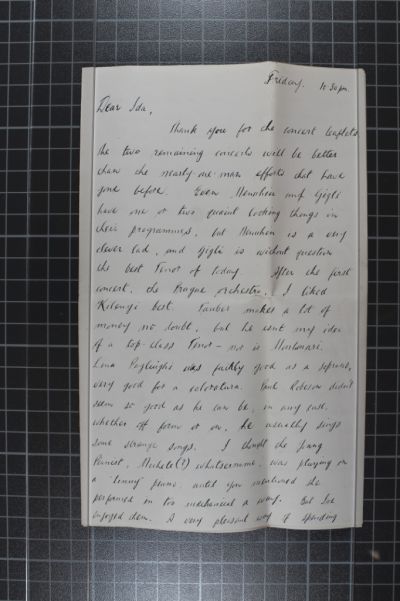 Friday. 10.30pm.
Dear Ida,
Thank you for the concert leaflets
the two remaining concerts will be better
than the nearly one-man efforts that have
gone before. Even Menuhin and Gigli
have one or two quaint looking things in
their programmes, but Menuhin is a very
clever lad, and Gigli is without question
the best Tenor of today. After the first
concert, the Prague orchestra, I liked
Kilenyi best. Tauber makes a lot of
money no doubt, but he isn't my idea
of a top-class Tenor - nor is
Lina Pagliughi was faintly good as a soprano,
very good for a coloratura. Paul Robeson didn't
seem so good as he can be, in any case,
whether off form or on, he usually sings
some strange songs. I thought the young
Pianist, Michele(?) whatsername, was playing on
a 'tinny' piano, until you mentioned she
performed in too mechanical a way. But I've
enjoyed them. A very pleasant way of spending